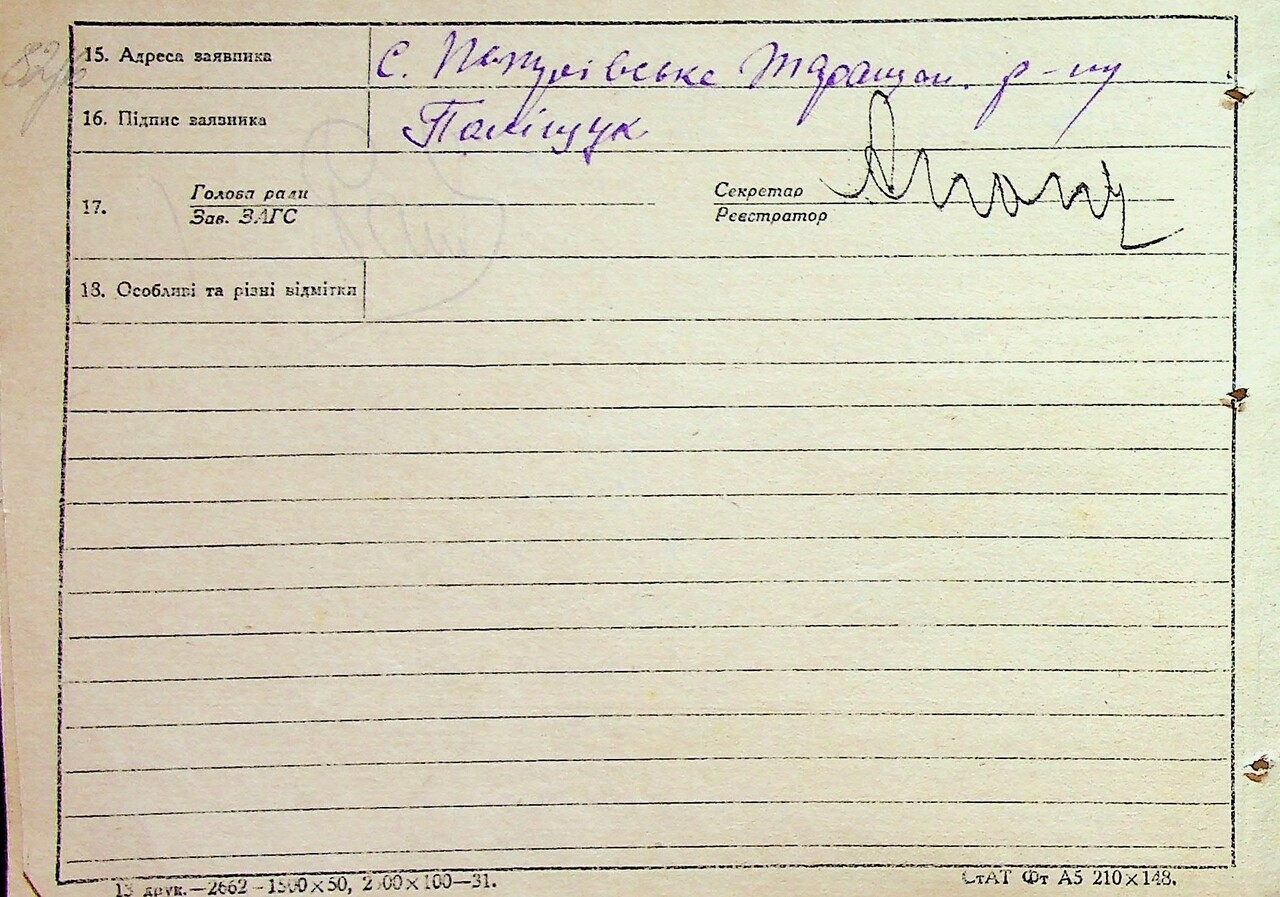 15. Адреса заявника
с. Таращан. р-ну
16. Підпис заявника
Поліщук
17.
Голова ради
Зав. ЗАГС
Секретар
Реєстратор
18. Особливі та різні відмітки
13 друк.—2662—1500×50, 2500×100—31.
СтАТ Фт А5 210×148.